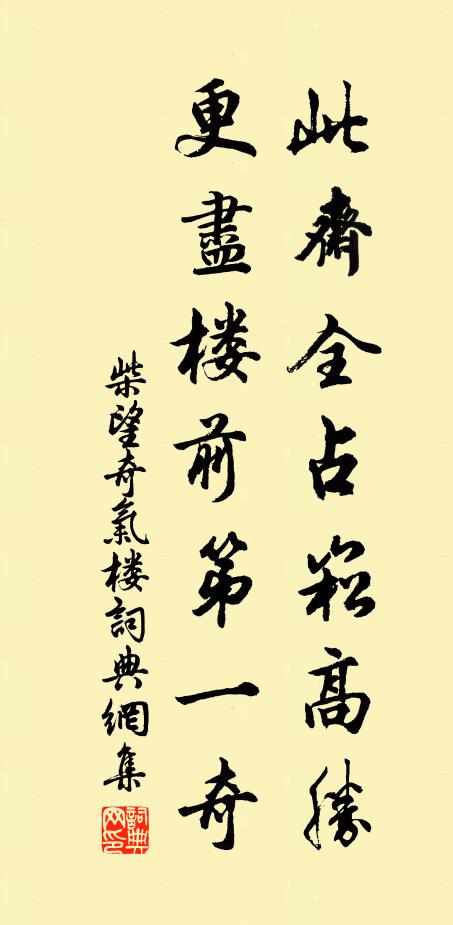 此齋全占崧高勝
更盡楼前第一奇
柴望奇氣楼詞典網集
詞典
网印